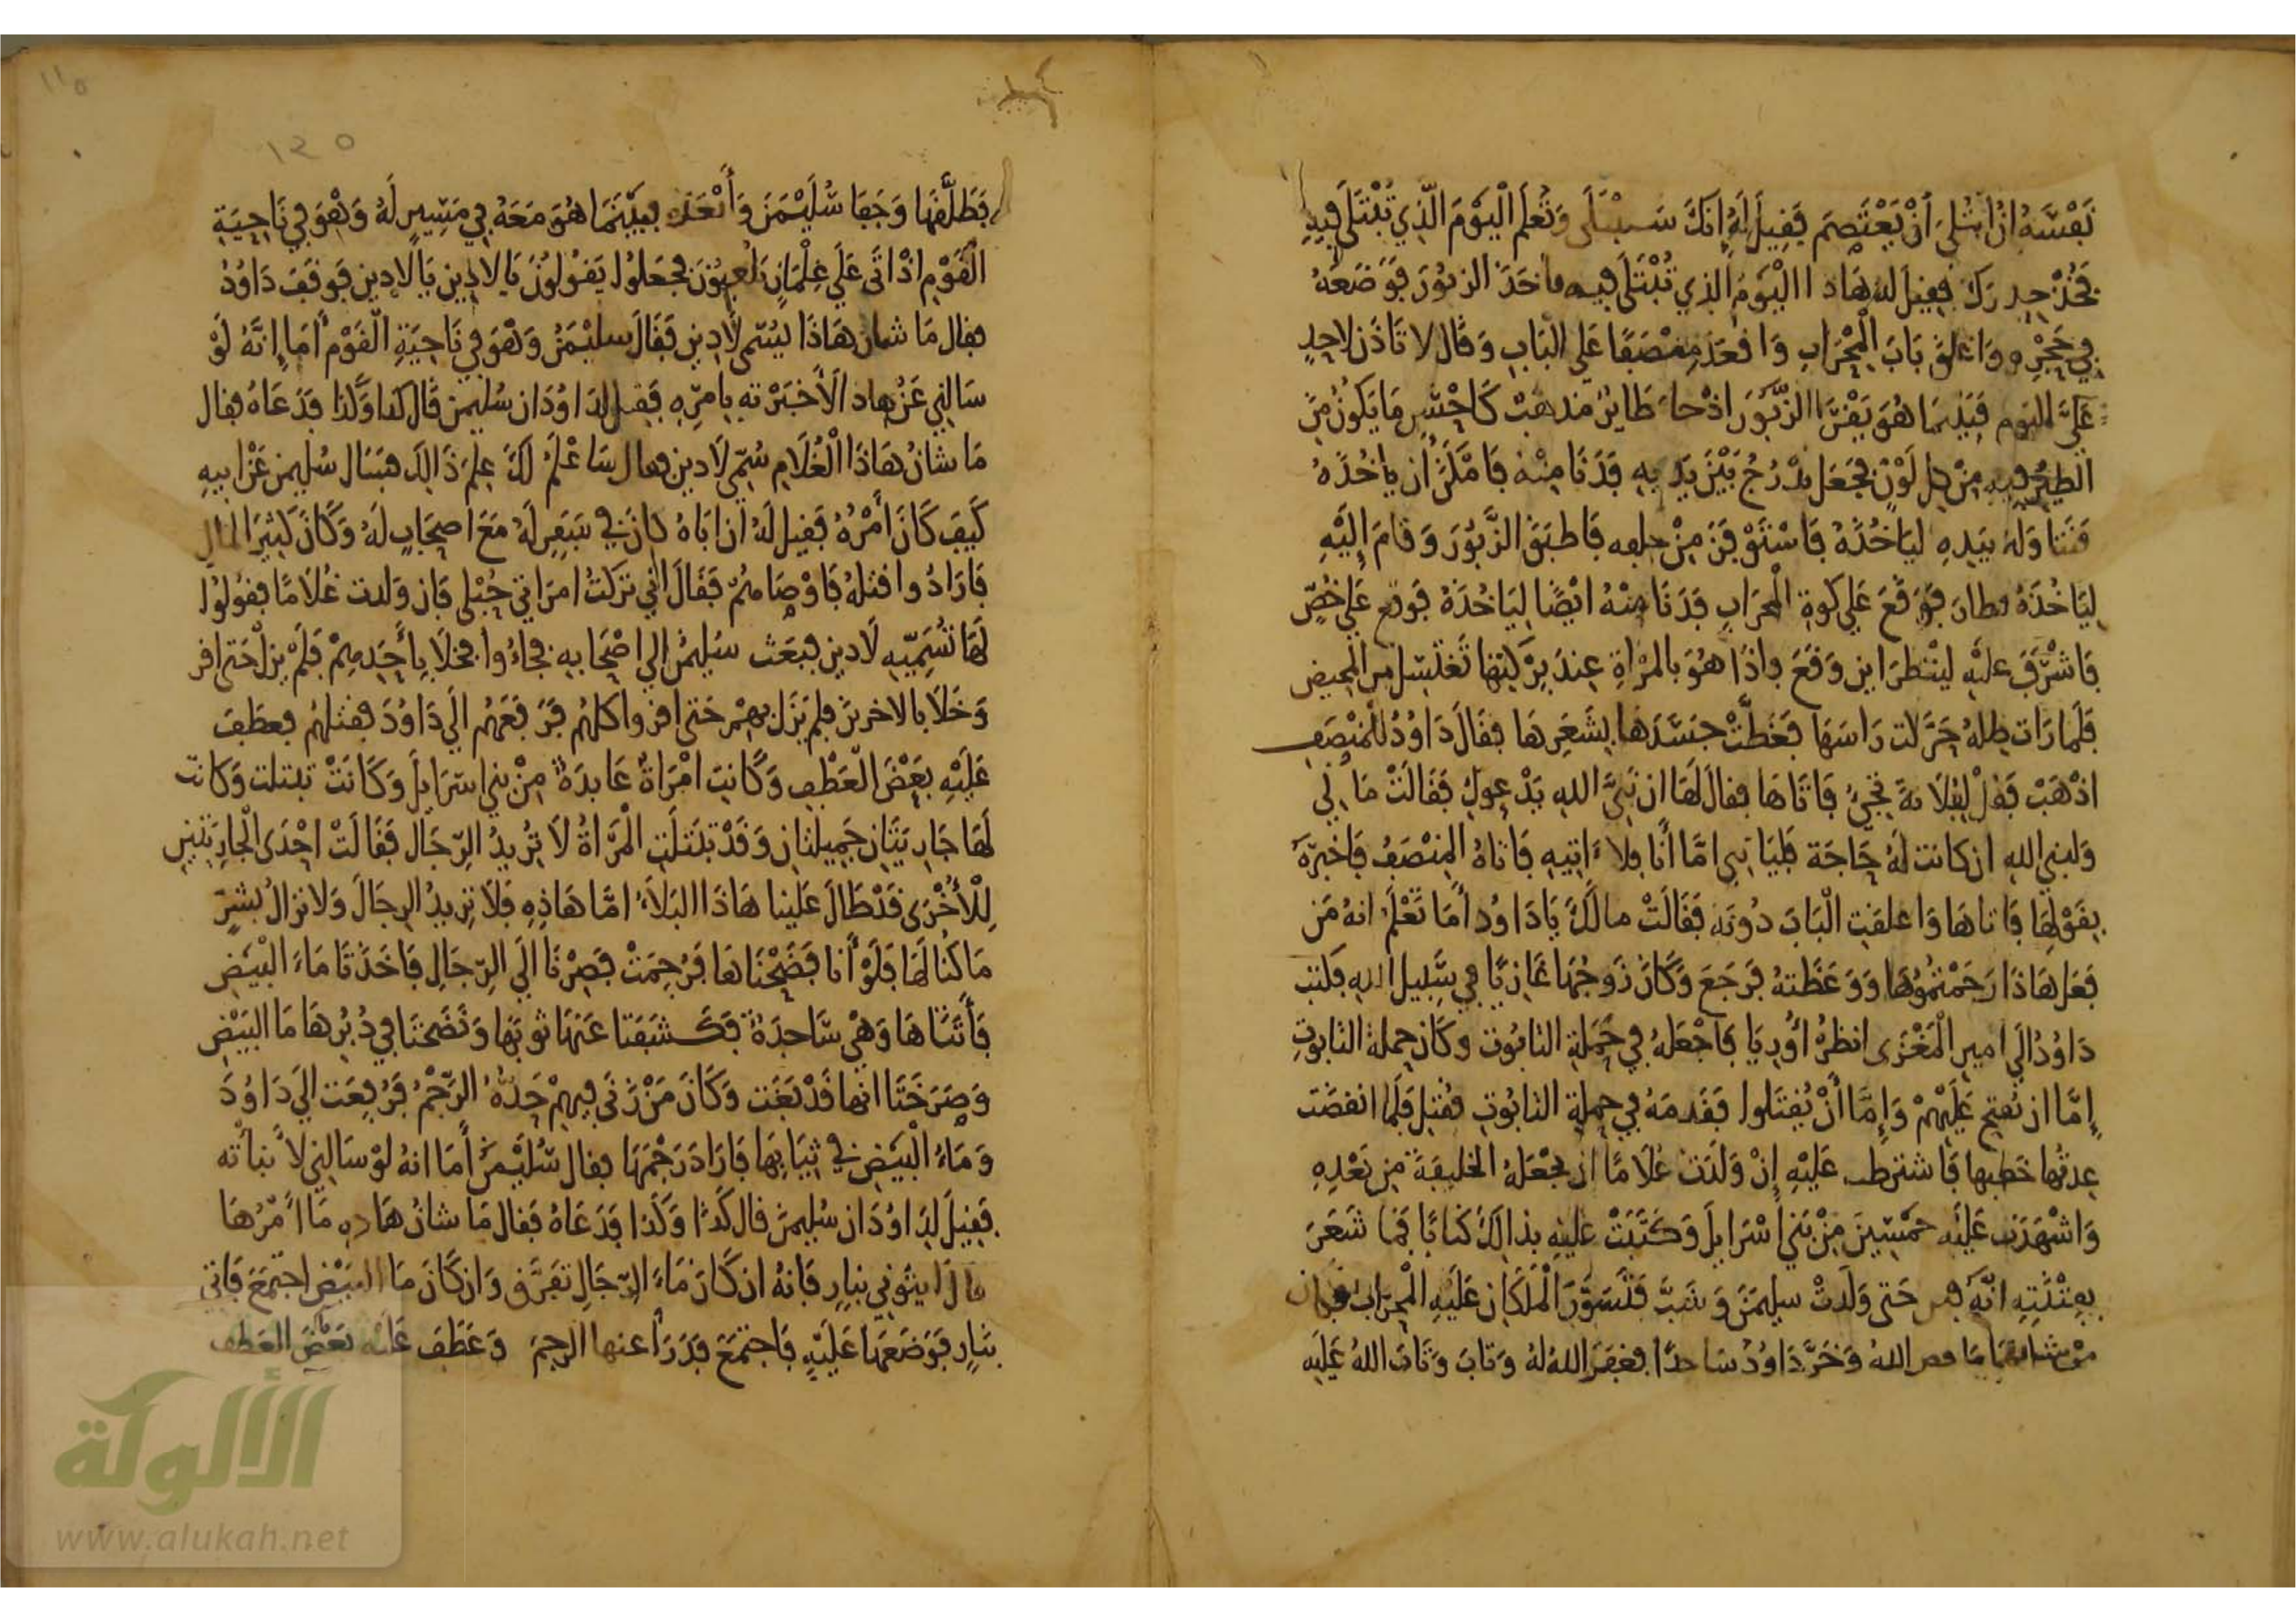 نَفْسَهُ إنُ ابْتُلىَ أنْ يَعْتَصِمَ فَقِيلَ لَهُ إنكَ سَتبْتَلَى وَتُعلَم الْيَوْمَ الّذِي تُبْتَلَى فِيهِ
فخُذْ حِدرَكَ فقِيلَ له هَادا الْيَوْمُ الذِي تُبْتَلَى فيه فأخَدَ الزبُورَ فوَضَعَهُ
فِي حَجْرِهِ وَاغلقَ بَابَ الْمِحْرَابِ وَاقعَدَ مِنصَفًا عَلَى البَابِ وَقال لا تَاذَن لاحِدٍ
عَلَيَّ اليَوم فبَيْنمَا هُوَ يَقْرَأ الزّبُورَ اذْ جاءَ طَايرٌ مذهَبٌ كَاحْسَنِ مَا يَكُونُ مِنَ
الطَيْرِ فيهِ مِنْ كل لَوْنٍ فجَعَل يدْرُجُ بَيْنَ يَدَيهِ فَدَنَا مِنْهُ فَامْكَنَ أن يأخُذَهُ
فَتَنَاوَلهُ بيَدِهِ ليَاخُذَهُ فَاسْتَوْفَزَ مِنْ خلفه فَاطبَقَ الزَّبُورَ وَقامَ إلَيْهِ
لِيَاخُذَهُ فطارَ فوَقَعَ عَلى كوةِ الْمحْرَابِ فَدَنَا مِنْهُ ايْضًا لِيَاخُذَهُ فَوقع عَلى خُصٍّ
فَاشْرَفَ عليْهِ لينْظرَ اين وَقَعَ فإذَا هُوَ بالمرْاةِ عِندَ بِرْكتِها تَغْتَسِل من المحِيض
فَلَمارَات ظِلهُ حَرَّكت رَاسَهَا فَغَطَّتْ جسَدَهَا بِشَعرِهَا فقَالَ دَاوُدُ للْمنْصَفِ
اذْهَبْ فَقلْ لِفُلَانةَ تجيُ فَاتَاهَا فقالَ لَهَا ان نَبِيَّ اللهِ يَدْعوكِ فَقَالَتْ مَا لِي
وَلنبي اللهِ ان كانت لَهُ حَاجَة فَليَاتنِي امَّا أنَا فلا ءَاتيهِ فَاتاهُ المِنْصَفُ فَاخْبَرَهُ
بِقَوْلِهَا فَاتاهَا وَاغلقَتِ الْبَابَ دُونَه فَقَالَتْ مالَكَ يَادَاوُد أمَا تَعْلَم انهُ مَن
فعَل هَاذَا رَجَمْتُمُوهَا وَوَعَظَتهُ فرَجَعَ وَكَانَ زَوجُهَا غَازيًا في سَبِيل اللهِ فكتب
دَاوُدُ إلَى امِيرِ الْمَغْزَى انظرْ أوريَا فَاجْعَلهُ فِي حَمَلةِ التابُوت وكَان حملةُ التابوتِ
إمّا ان يُفتح عَلَيْهِمْ وَإمَّا أنْ يُقتَلوا فَقَدمَهُ في حملةِ التابُوتِ فقُتِل فلَمَّا انقضَت
عِدتُها خَطبها فَاشترَطت عَليْهِ إنْ وَلدَت غلامًا أن يجْعَلهُ الخليفَةَ مِن بَعْدِهِ
وَاشْهَدَت عَليْه خمْسِينَ مِنْ بَنِي اسْرَايلَ وَكتَبَتْ عَليْهِ بذَالِكَ كتابًا فمَا شَعَرَ
بفِتْنَتِهِ انّه حَتى وَلَدتْ سليمَنَ وَشَبَّ فَتَسَوَّرَ الْمَلَكَانِ عَليْهِ الْمِحْرَابَ فكان
من شانهمَا مَا قص اللهُ وَخَرَّ دَاوُدُ سَاجدًا فغفَرَ اللهُ لهُ وَتابَ وَتابَ اللهُ عَليه
١١٥
١٢٥
فَطَلَّقَهَا وَجَفَا سُلَيْمَنَ وَأبْعَدَه فبيْنَمَا هُوَ مَعَهُ في مَسِيرٍ لَهُ وَهْوَ فِي نَاحِيَةِ
الْقَوْمِ اذْ اتَى عَلَى غِلْمَانٍ يَلْعبُونَ فجَعَلوُا يَقُولوُنَ يَالادِين يَالادِين فوَقفَ دَاوُدُ
فقال مَا شان هَاذَا يُسَمّى لَادِين فَقَالَ سليْمَنُ وَهْوَ فِي نَاحِيَةِ الْقَوْم أمَا إنَّهُ لَوْ
سَالنِي عَنْ هاد الَأخبَرْته بِامرِهِ فقيل لدَاوُدَ ان سُليمن قَال كدا وَكدا فدَعَاهُ فقال
مَا شانُ هَاذَا الْغُلَامِ سُمّي لَادِين فقال سَاعْلَمُ لَكَ عِلمَ ذَالِكَ فسَال سُليمن عَنْ ابيهِ
كَيفَ كَانَ أمْرُهُ فَقيل لَهُ ان ابَاهُ كانَ في سَفَرٍ لَهُ مَعَ اصحَابٍ لَهُ وَكَانَ كثِيرَ المالِ
فَارَادُوا قتلهُ فَاوْصَامهُمْ فَقَالَ اني تَرَكتُ امرَاتي حُبْلى فَان وَلدت غُلَامًا فقولوُا
لَهَا تُسَمِّيهِ لَادِين فبَعَث سُليمَنُ الى اصْحَابهِ فجاءُوا فخَلَا بِأحَدِهِمْ فَلَمْ يزلْ حَتى اقر
وَخَلَا بالاخرِينَ فلم يَزَل بِهِمْ حَتى اقروا كلهُم فَرَفعَهُم الَى دَاوُدَ فقتلهُم فعطَفَ
عَلَيْهِ بعْضَ الْعَطْفِ وَكَانَتِ امْرَاةٌ عَابدَةٌ مِنْ بني اسْرَايلَ وَكَانَتْ تبتلت وَكانت
لَهَا جَارِيَتَانِ جَمِيلتان وَقَدْ تبتَلَتِ الْمَرْأةُ لَا تُرِيدُ الرّجَالَ فَقَالَتْ احْدَى الْجَارِيَتَيْنِ
لِلْأُخْرَى قدْ طَالَ عَلينا هَاذَا البَلَاءُ امّا هَاذِهِ فلَا تريدُ الرجَالَ وَلَا نزالُ بشَرٍّ
مَا كُنا لَهَا فَلَوْ أنا فَضَحْنَاهَا فَرُجِمَتْ فَصِرْنَا الَى الرّجَالِ فَاخَذَتَا مَاءَ الْبَيْضِ
فَأتتَاهَا وَهْيَ سَاجِدَةٌ فكشَفَتا عَنهَا ثوبَهَا وَنضَحتَا في دُبُرِهَا مَا البَيْضِ
وَصَرَخَتَا انها قَدْ بَغَت وَكَانَ مَنْ زَنى فيهِمْ حَدُّهُ الرّجْمُ فَرُفِعَت الَى دَاوُدَ
وَمَاءُ الْبَيضِ في ثِيَابِهَا فَارَادَ رَجْمَهَا فقال سُلَيْمَنُ أمَا انهُ لوْ سَالنِي لأنبأته
فَقِيلَ لِدَاوُدَ ان سُليمنَ قال كذَا وَكذا فَدَعَاهُ فَقال مَا شانُ هَاذِهِ مَا امْرُهَا
قالَ ايتوُني بنارٍ فَانهُ ان كَانَ مَاءَ الرّجَالِ تفَرَّق وَان كَانَ مَاءَ البَيْضِ اجتمَعَ فَاتِيَ
بنَارٍ فَوَضَعَهَا عَلَيْهِ فَاجتمَعَ فدَرَأ عنها الرجمَ وَعَطَفَ عَليْه بَعْضَ العَطف
الألوكة
www.alukah.net